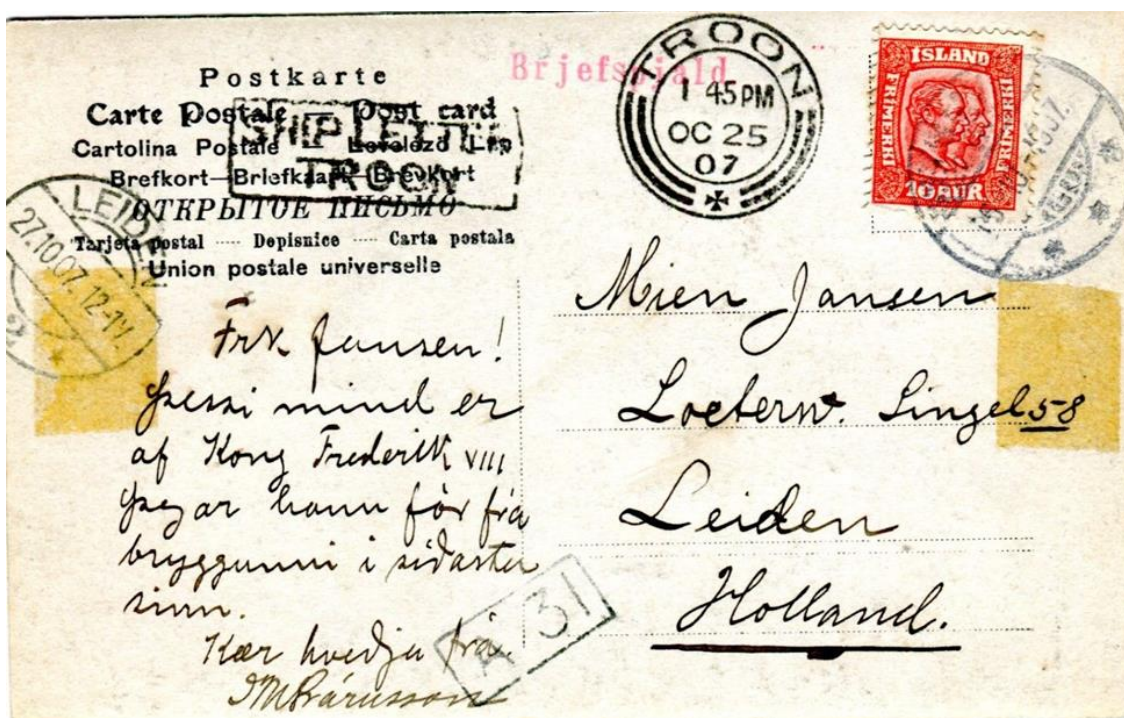 Postkarte
Carte Postale Post card
Cartolina Postale Levelező Lap
Brefkort—Briefkaart—Brevkort
ОТКРЫТОЕ ПИСЬМО
Tarjeta postal ---- Dopisnice ---- Carta postala
Union postale universelle
SHIP LETTER
TROON
Brjefspjald
TROON
1 45 PM
OC 25
07
ÍSLAND
FRÍMERKI
FRÍMERKI
10 AUR
LEIDEN
27.10.07. 12-1V.
2
Frk Jansen!
Þessi mind er
af Kong Frederik VIII
Þegar hann fór frá
bryggunni i siðasta
sinn.
Kær kveðja frá
A 31
Mien Jansen
Singel 58
Leiden
Holland.